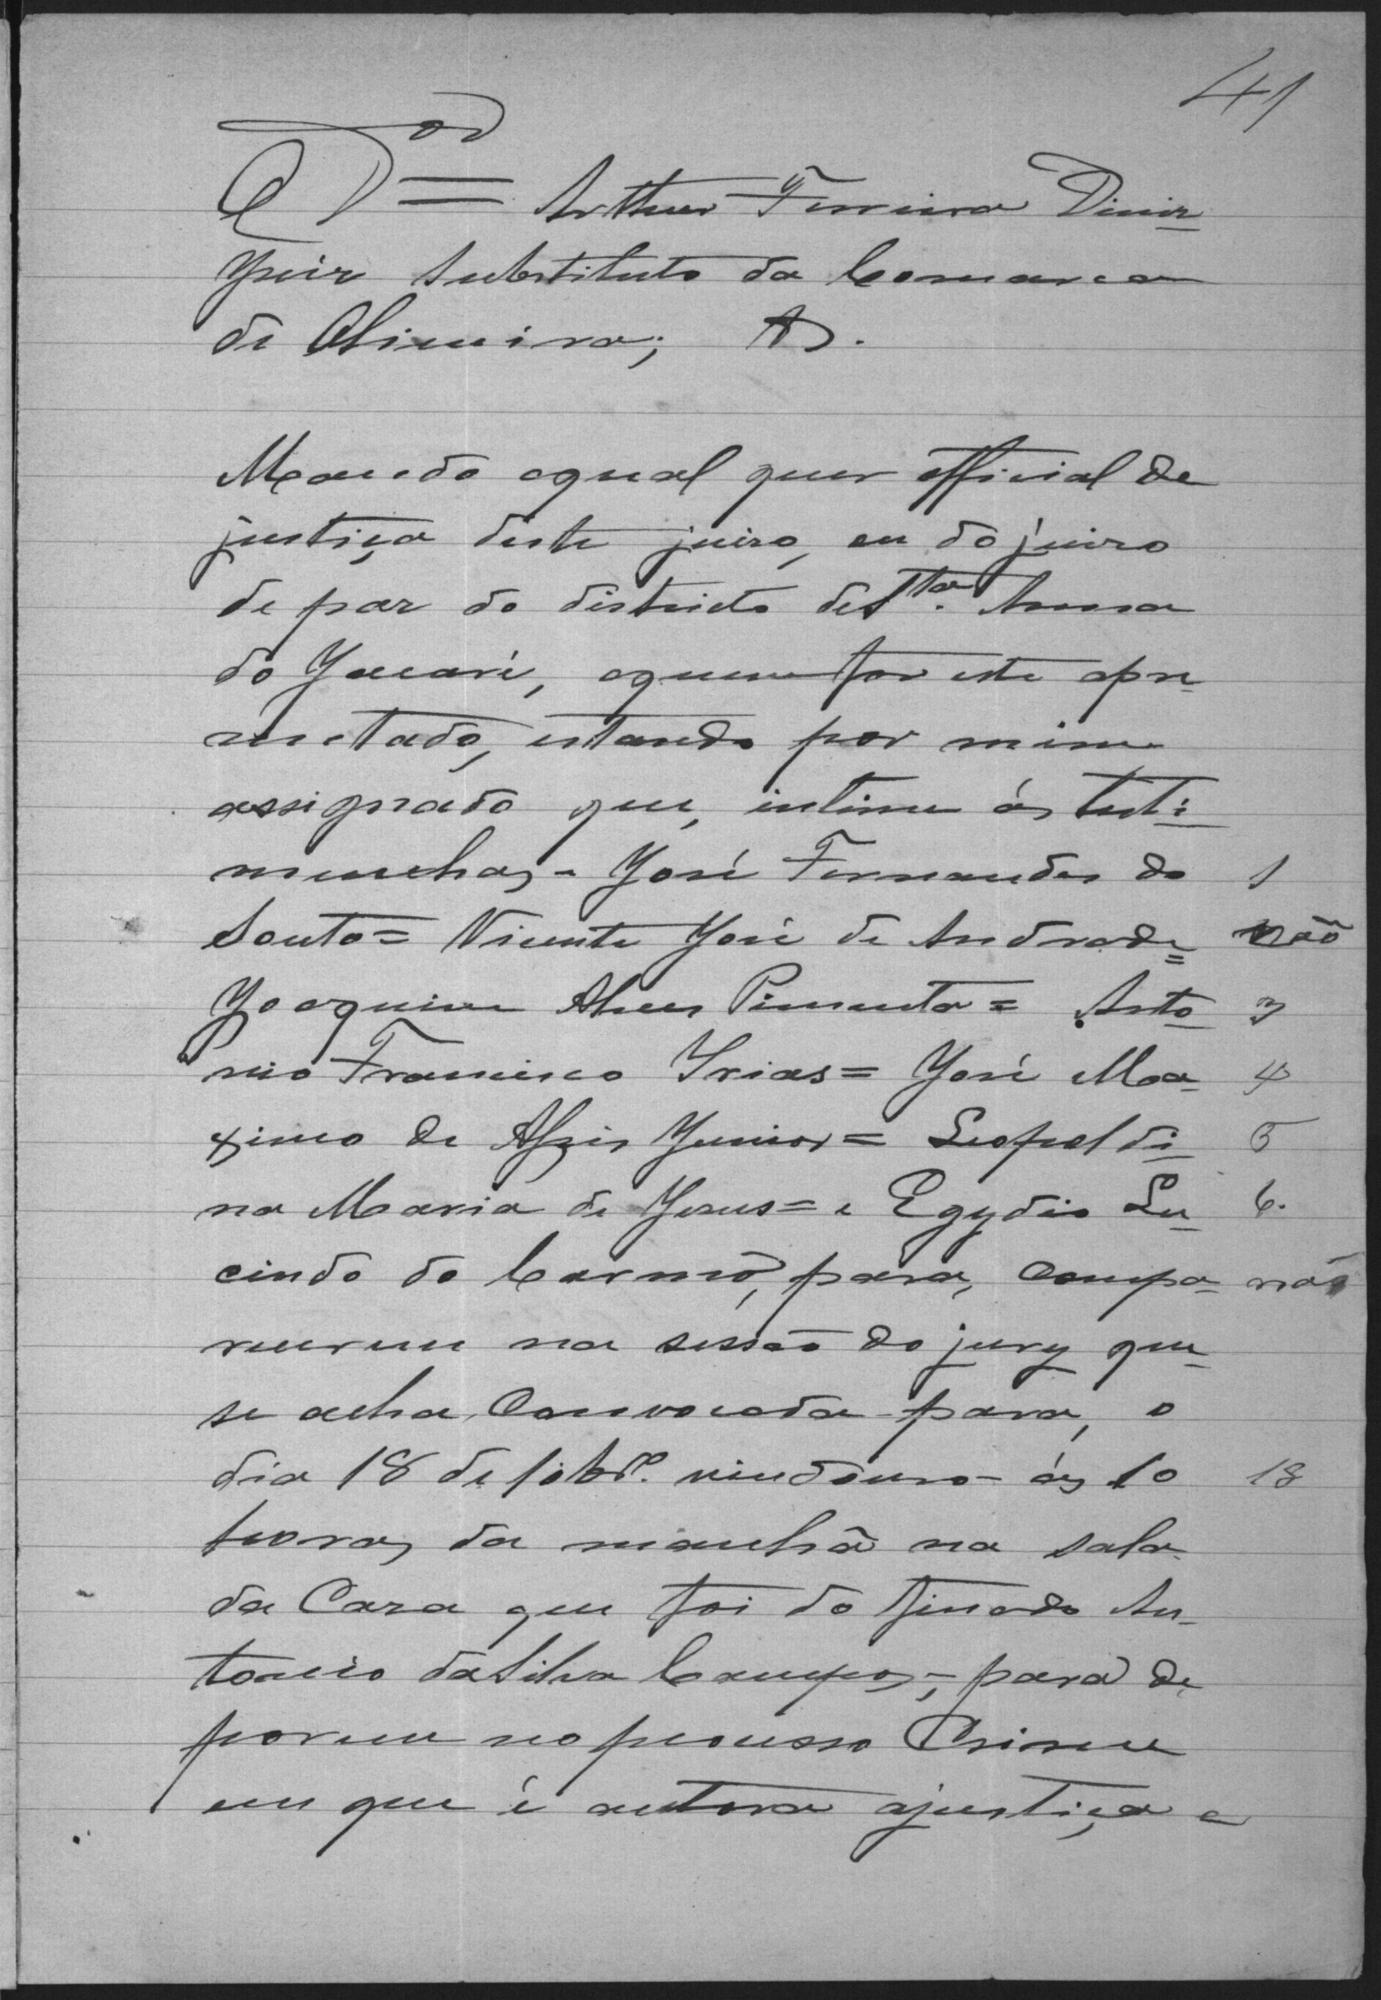 41
O Dor = Arthur Ferreira Diniz
Juiz Substituto da Comarca
de Oliveira; &.
Mando aqual quer official de
justiça deste juizo, ou do juizo
de paz do districto de Sta. Anna
do Jacaré, aquem for este apre-
sentado, estando por mim
assignado que, intime ás testi-
munhas - José Fernandes do 1
Souto = Vicente José de Andrade = não
Joaquim Alves Pimenta = Anto- 3
nio Francisco Frias = José Ma- 4
ximo de Assis Junior = Leopoldi- 5
na Maria de Jesus = e Egydio Lu- 6.
cindo do Carmo, para, compa- não
recerem na sessão do jury que
se acha, convocada para, o
dia 18 de vindouro - ás 10 18
horas da manhã na sala
da Caza que foi do finado An-
tonio da Silva Campos -, para de
porem no processo Crime
em que é autora ajustiça e